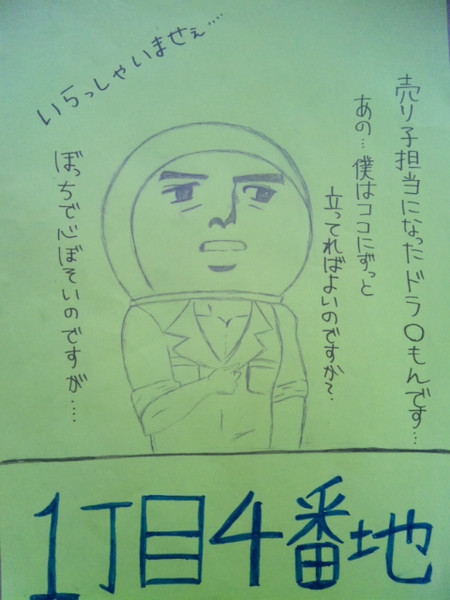 いらっしゃいませぇ……
売り子担当になったドラ〇もんです…
あの…僕はココにずっと
立ってればよいのですか〜
ぼっちで心ぼそいのですが…
1丁目4番地